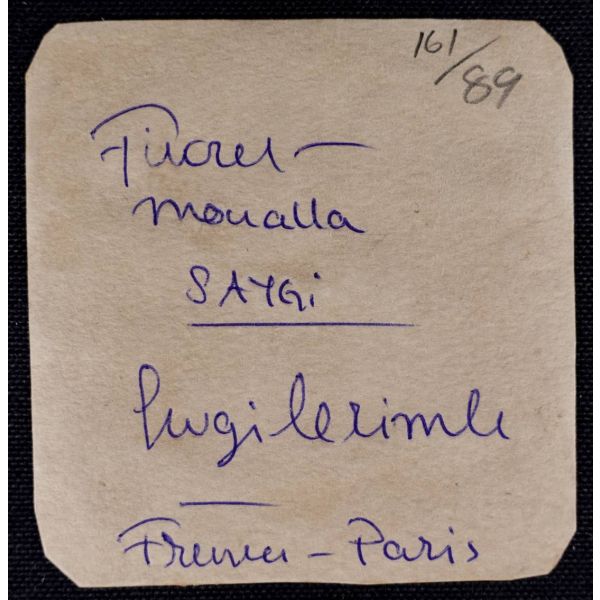 161/89
Fikret
moualla
SAYGI
Sevgilerimle
France - Paris